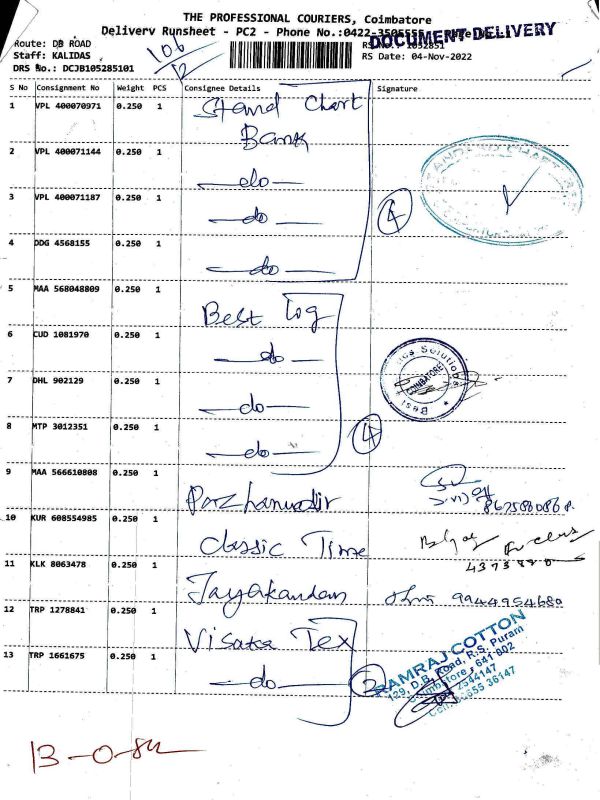 THE PROFESSIONAL COURIERS, Coimbatore
Delivery Runsheet - PC2 - Phone No.:0422-3505555
DOCUMENT DELIVERY
Route: DB ROAD
Staff: KALIDAS
DRS No.: DCJB105285101
106
12
1052851
RS Date: 04-Nov-2022
S No Consignment No Weight PCS Consignee Details Signature
1 VPL 400070971 0.250 1 Stand Chart Bank
2 VPL 400071144 0.250 1 do
3 VPL 400071187 0.250 1 do
4
4 DDG 4568155 0.250 1 do
5 MAA 568048809 0.250 1 Best Log
6 CUD 1081970 0.250 1 do
Best Solutions
COIMBATORE
7 DHL 902129 0.250 1 do
8 MTP 3012351 0.250 1 do
4
9 MAA 566610808 0.250 1 Pazhamudir
10 KUR 608554985 0.250 1 Classic Time
11 KLK 8063478 0.250 1 Jayakandan 9944954680
12 TRP 1278841 0.250 1 Visaka Tex
13 TRP 1661675 0.250 1 do
2
RAMRAJ COTTON
129, D.B. Road, R.S. Puram
Coimbatore, 641 002
2544147
36147
13-0-